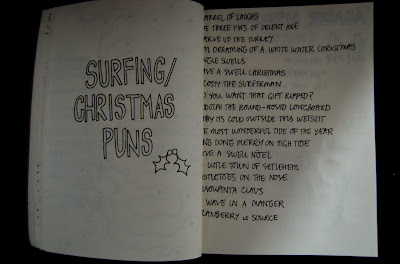 SURFING/
CHRISTMAS
PUNS
BARREL OF LAUGHS
THREE FINS OF ORIENT ARE
CARVE UP THE TURKEY
DREAMING OF A WHITE WATER CHRISTMAS
SWELLS
HAVE A SWELL CHRISTMAS
THE SURFERMAN
DO YOU WANT THAT GIFT RIPPED?
THE ROUND-NOSED LONGBOARD
IT'S COLD OUTSIDE THIS WETSUIT
MOST WONDERFUL TIDE OF THE YEAR
DING DONG MERRY ON HIGH TIDE
HAVE A SWELL NOEL
LITTLE TOWN OF SETLEHEM
ON THE NOSE
CLAUS
WAVE IN A MANGER
CRANBERRY